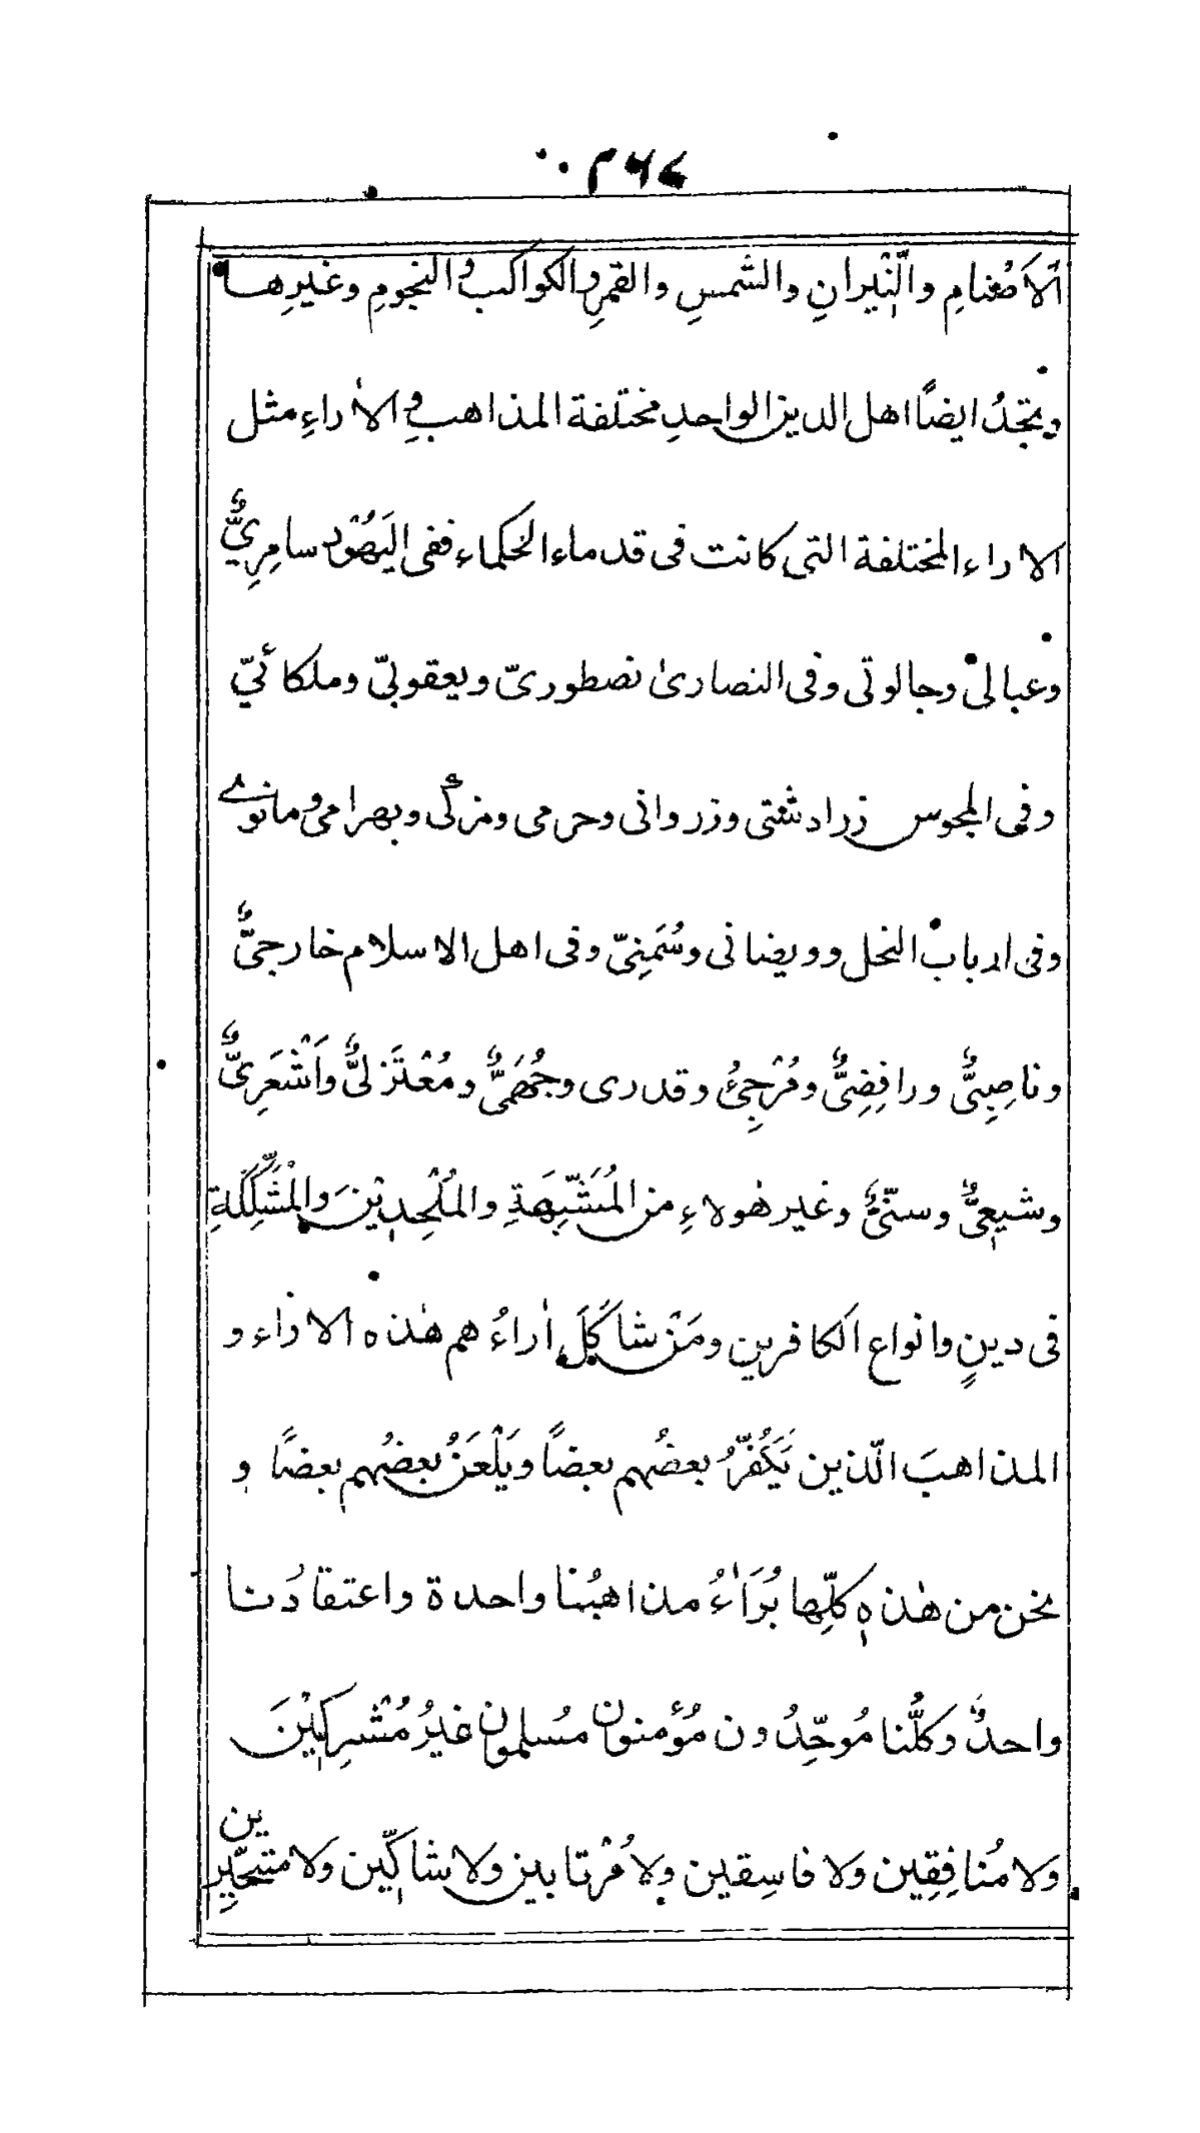 الاَصْنامِ والنِّيْرانِ والشمسِ والقمرِ والكواكبِ والنجومِ وغيرِها
ونجدُ ايضًا اهل الدين الواحدِ مختلفة المذاهبِ والاٰراءِ مثل
الاراء المختلفة التى كانت فى قدماء الحكماء ففى اليَهُوْد سامِرِيٌّ
وعبالىْ وجالوتى وفى النصارىٰ نصطورىّ ويعقوبىّ وملكائىّ
وفى المجوس زرادشتى وزروانى وحرمى ومزدكى وبهرامى ومانوى
وفى ارباب النحل وويضانى وسُمَنِىّ وفى اهل الاسلام خارجىٌّ
وناصِبِىٌّ ورافِضِىٌّ ومُرْجِئُ وقدرى وجُهَمِىٌّ ومُعْتَزلىٌّ واَشْعَرِىٌّ
وشيعِىٌّ وسنّىٌّ وغير هٰولاءِ من المُشَبِّهَةِ والمُلْحِدِيْنَ والمُشَكِّكَةِ
فى دينٍ وانواع الكافرين ومَنْ شاكَلَ اٰراءُهم هٰذه الاراء و
المذاهبَ الّذين يَكْفُرُ بعضُهم بعضًا ويَلْعَنُ بعضُهم بعضًا و
نحن من هٰذه كلِّها بُرَاٰءُ مذاهبُنا واحدة واعتقادُنا
واحدٌ وكلُّنا مُوحِّدُون مُؤمنون مُسلمون غيرُ مُشْرِكِيْنَ
وَلا مُنافِقِين وَلا فاسِقين وِلا مُرْتابين وَلا شاكِّين وَلا متحيّرين